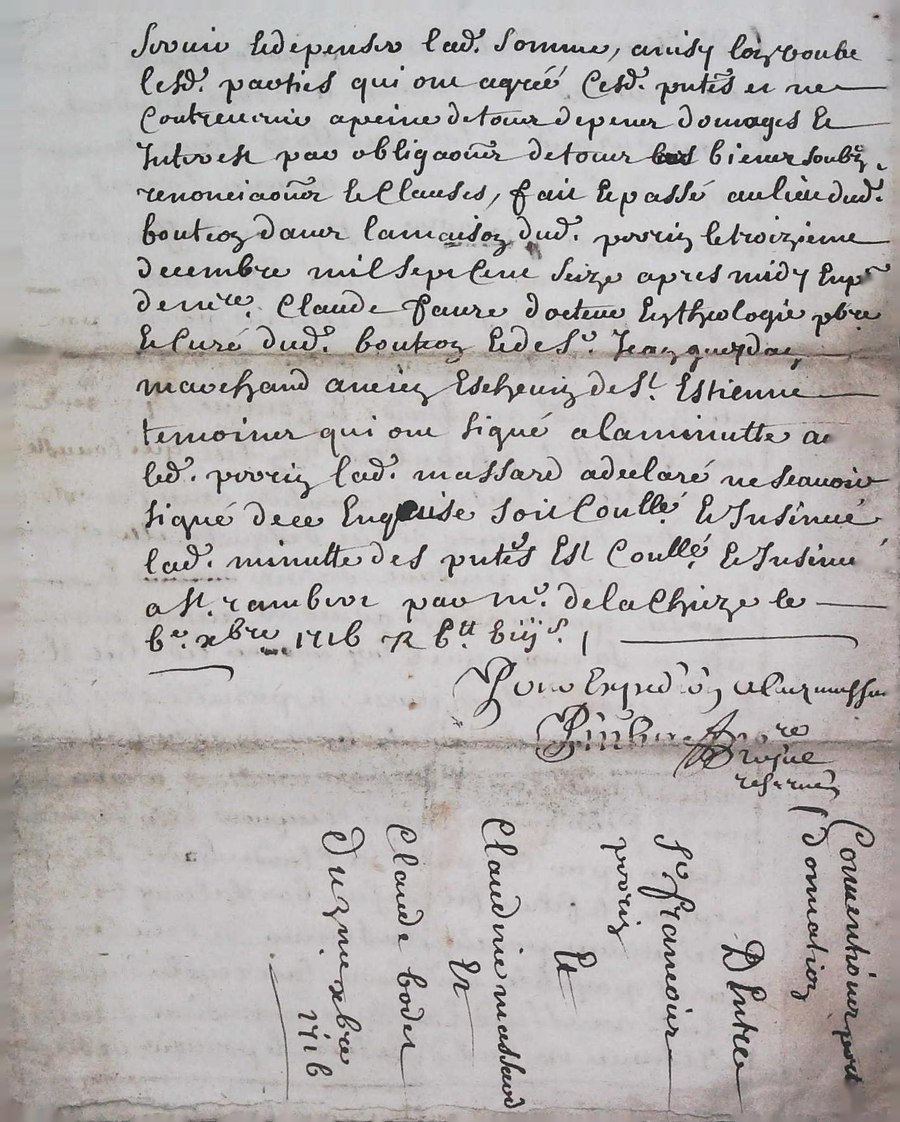 servir et depenser lad. somme, ainsy l'on voulu
lesd. parties qui ont agréé Cesd. pntes et ne
Contrevenir a peine de tous depens domages et
Interest par obligaons de tous biens soub.
renonciaons et Clauses, fait et passé au lieu dud.
bouteon dans la maison dud. poorin le troizieme
decembre mil sept Cent seize apres midy En p.
de mre. Claude faure docteur En theologie pbre
et Curé dud. bouteon et de Sr. Jean
marchand ancien Eschevin de St. Estienne
temoins qui ont signé a la minutte ac
led. poorin lad. massard a declaré ne scavoir
signé de ce Enquise soit Conllé et Insinué
lad. minutte des pntes Est Conllé et Insinué
a St. rambert par mr. de la Chieze le
6e. xbre 1716 R 6tt 6iij s.
Pour Expedion
re
royal
reservé
Conventions port
donnation
D'Entre
Sr. francois
poorin
Et
Claudine massard
Et
Claude bodet
Du 3me xbre
1716